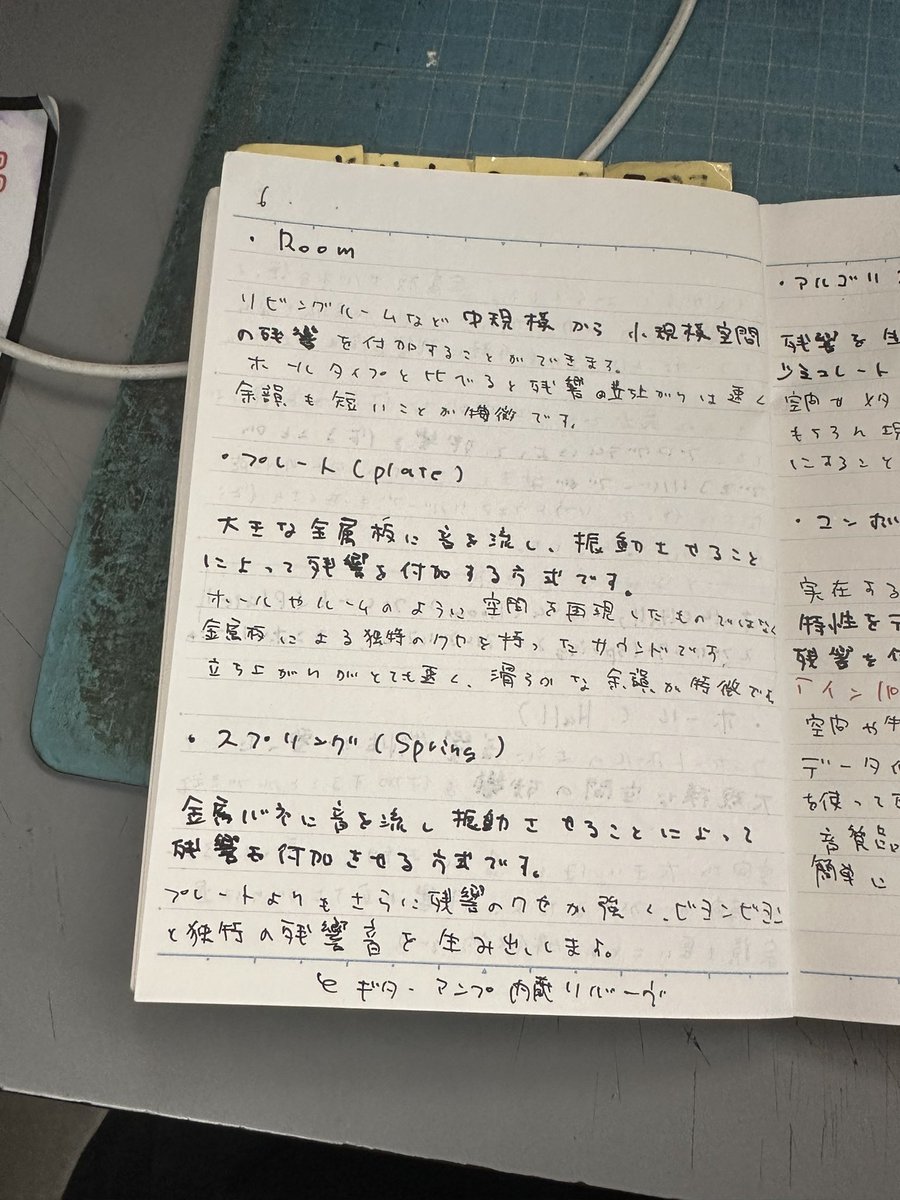 6
・Room
リビングルームなど中規模から小規模空間
の残響を付加することができます。
ホールタイプと比べると残響の立ち上がりは速く
余韻も短いことが特徴です。
・プレート(plate)
大きな金属板に音を流し、振動させること
によって残響を付加する方式です。
ホールやルームのように空間を再現したものではなく
金属板による独特のクセを持ったサウンドです。
立ち上がりがとても速く、滑らかな余韻が特徴です
・スプリング(Spring)
金属バネに音を流し振動させることによって
残響を付加させる方式です。
プレートよりもさらに残響のクセが強く、ビヨンビヨン
と独特の残響音を生み出します。
ギターアンプ内蔵リバーヴ
・アルゴリ
残響を
シミュレート
空間や
もちろん現
にすること
・コンボ
実在する
特性を
残響を付
空間や
データ
を使って
音質
簡単に